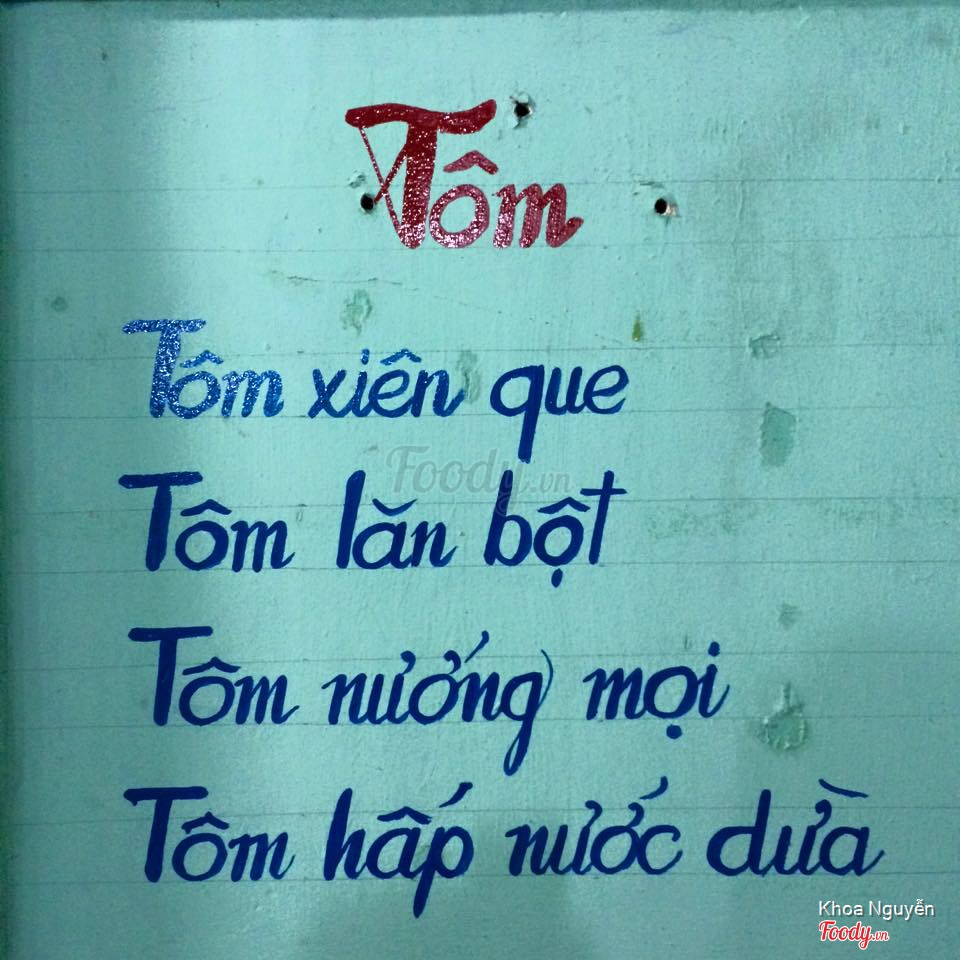 Tôm
Tôm xiên que
Foody.vn
Tôm lăn bột
Tôm nướng mọi
Tôm hấp nước dừa
Khoa Nguyễn
Foody.vn